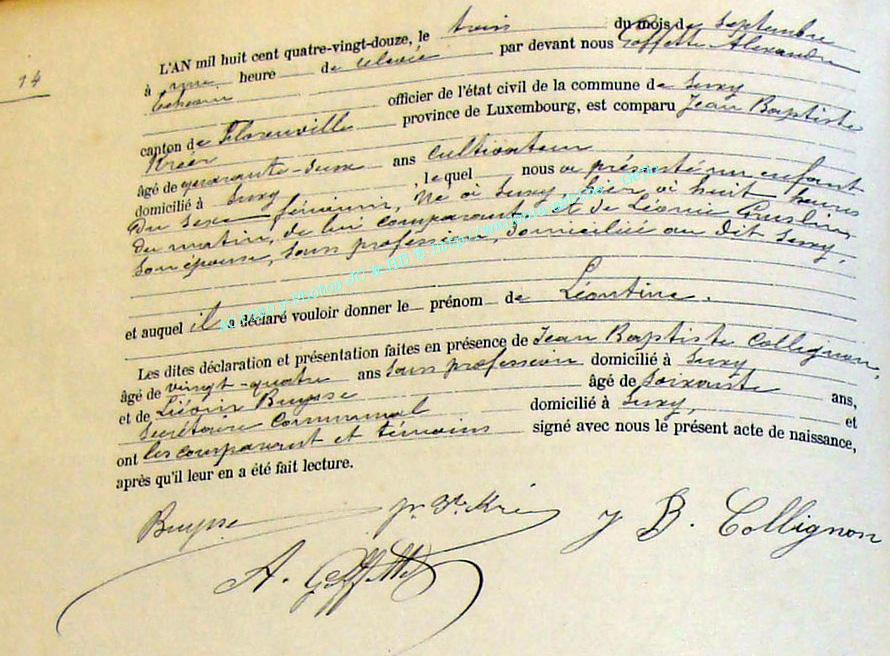 14
L'AN mil huit cent quatre-vingt-douze, le trois du mois de Septembre
à une heure de relevée par devant nous Goffette Alexandre
Échevin officier de l'état civil de la commune de Suxy
canton de Florenville province de Luxembourg, est comparu Jean Baptiste
Kréer
âgé de quarante-deux ans Cultivateur
domicilié à Suxy, lequel nous a présenté un enfant
du sexe féminin, Né à Suxy, hier à huit heures
du matin, de lui comparant et de Léonie
son épouse, sans profession, domiciliée au dit Suxy,
et auquel il a déclaré vouloir donner le prénom de Léontine.
Les dites déclaration et présentation faites en présence de Jean Baptiste Collignon,
âgé de vingt-quatre ans sans profession domicilié à Suxy
et de Buysse âgé de soixante ans,
Secrétaire Communal domicilié à Suxy, et
ont les comparant et témoins signé avec nous le présent acte de naissance,
après qu'il leur en a été fait lecture.
Buysse J. B. Collignon
A. Goffette